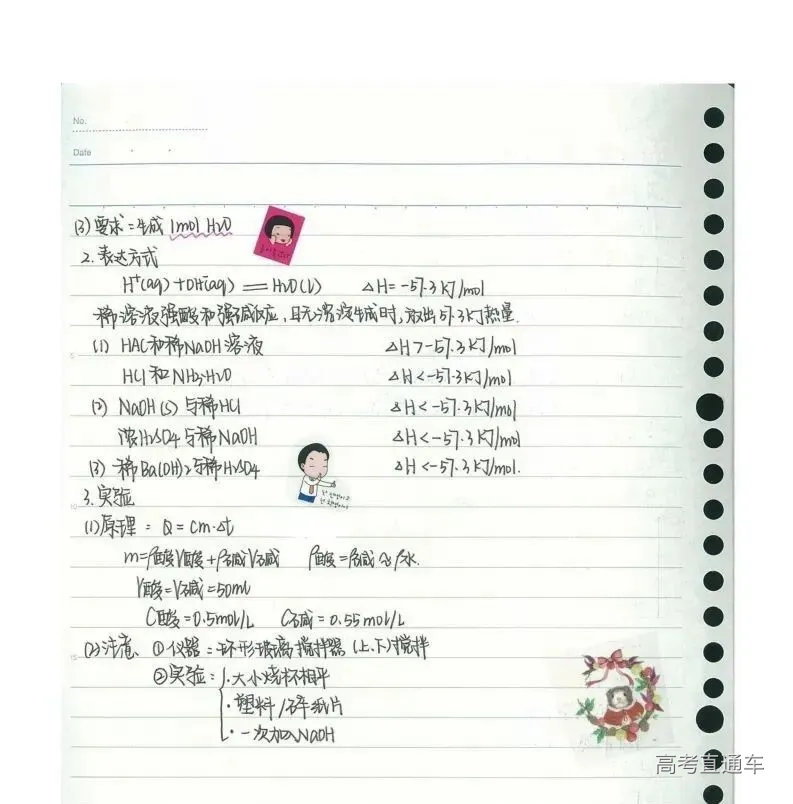 No.
Date
(3) 要求:生成 1mol H₂O
2. 表达方式
H⁺(aq)+OH⁻(aq) == H₂O(l) △H=-57.3 KJ/mol
稀溶液强酸和强碱反应,且无溶液生成时,放出57.3KJ热量.
(1) HAC和稀NaOH溶液 △H>-57.3KJ/mol
HCl和NH₃·H₂O △H<-57.3KJ/mol
(2) NaOH(s)与稀HCl △H<-57.3KJ/mol
浓H₂SO₄与稀NaOH △H<-57.3KJ/mol
(3) 稀Ba(OH)₂与稀H₂SO₄ △H<-57.3KJ/mol.
3. 实验
(1)原理: Q=cm·△t
m=ρ酸V酸+ρ碱V碱 ρ酸=ρ碱≈ρ水.
V酸=V碱=50ml
C酸=0.5mol/L C碱=0.55mol/L
(2)注意、①仪器:环形玻璃搅拌器(上、下)搅拌
②实验:·大小烧杯相平
·塑料/碎纸片
·一次加入NaOH
高考直通车